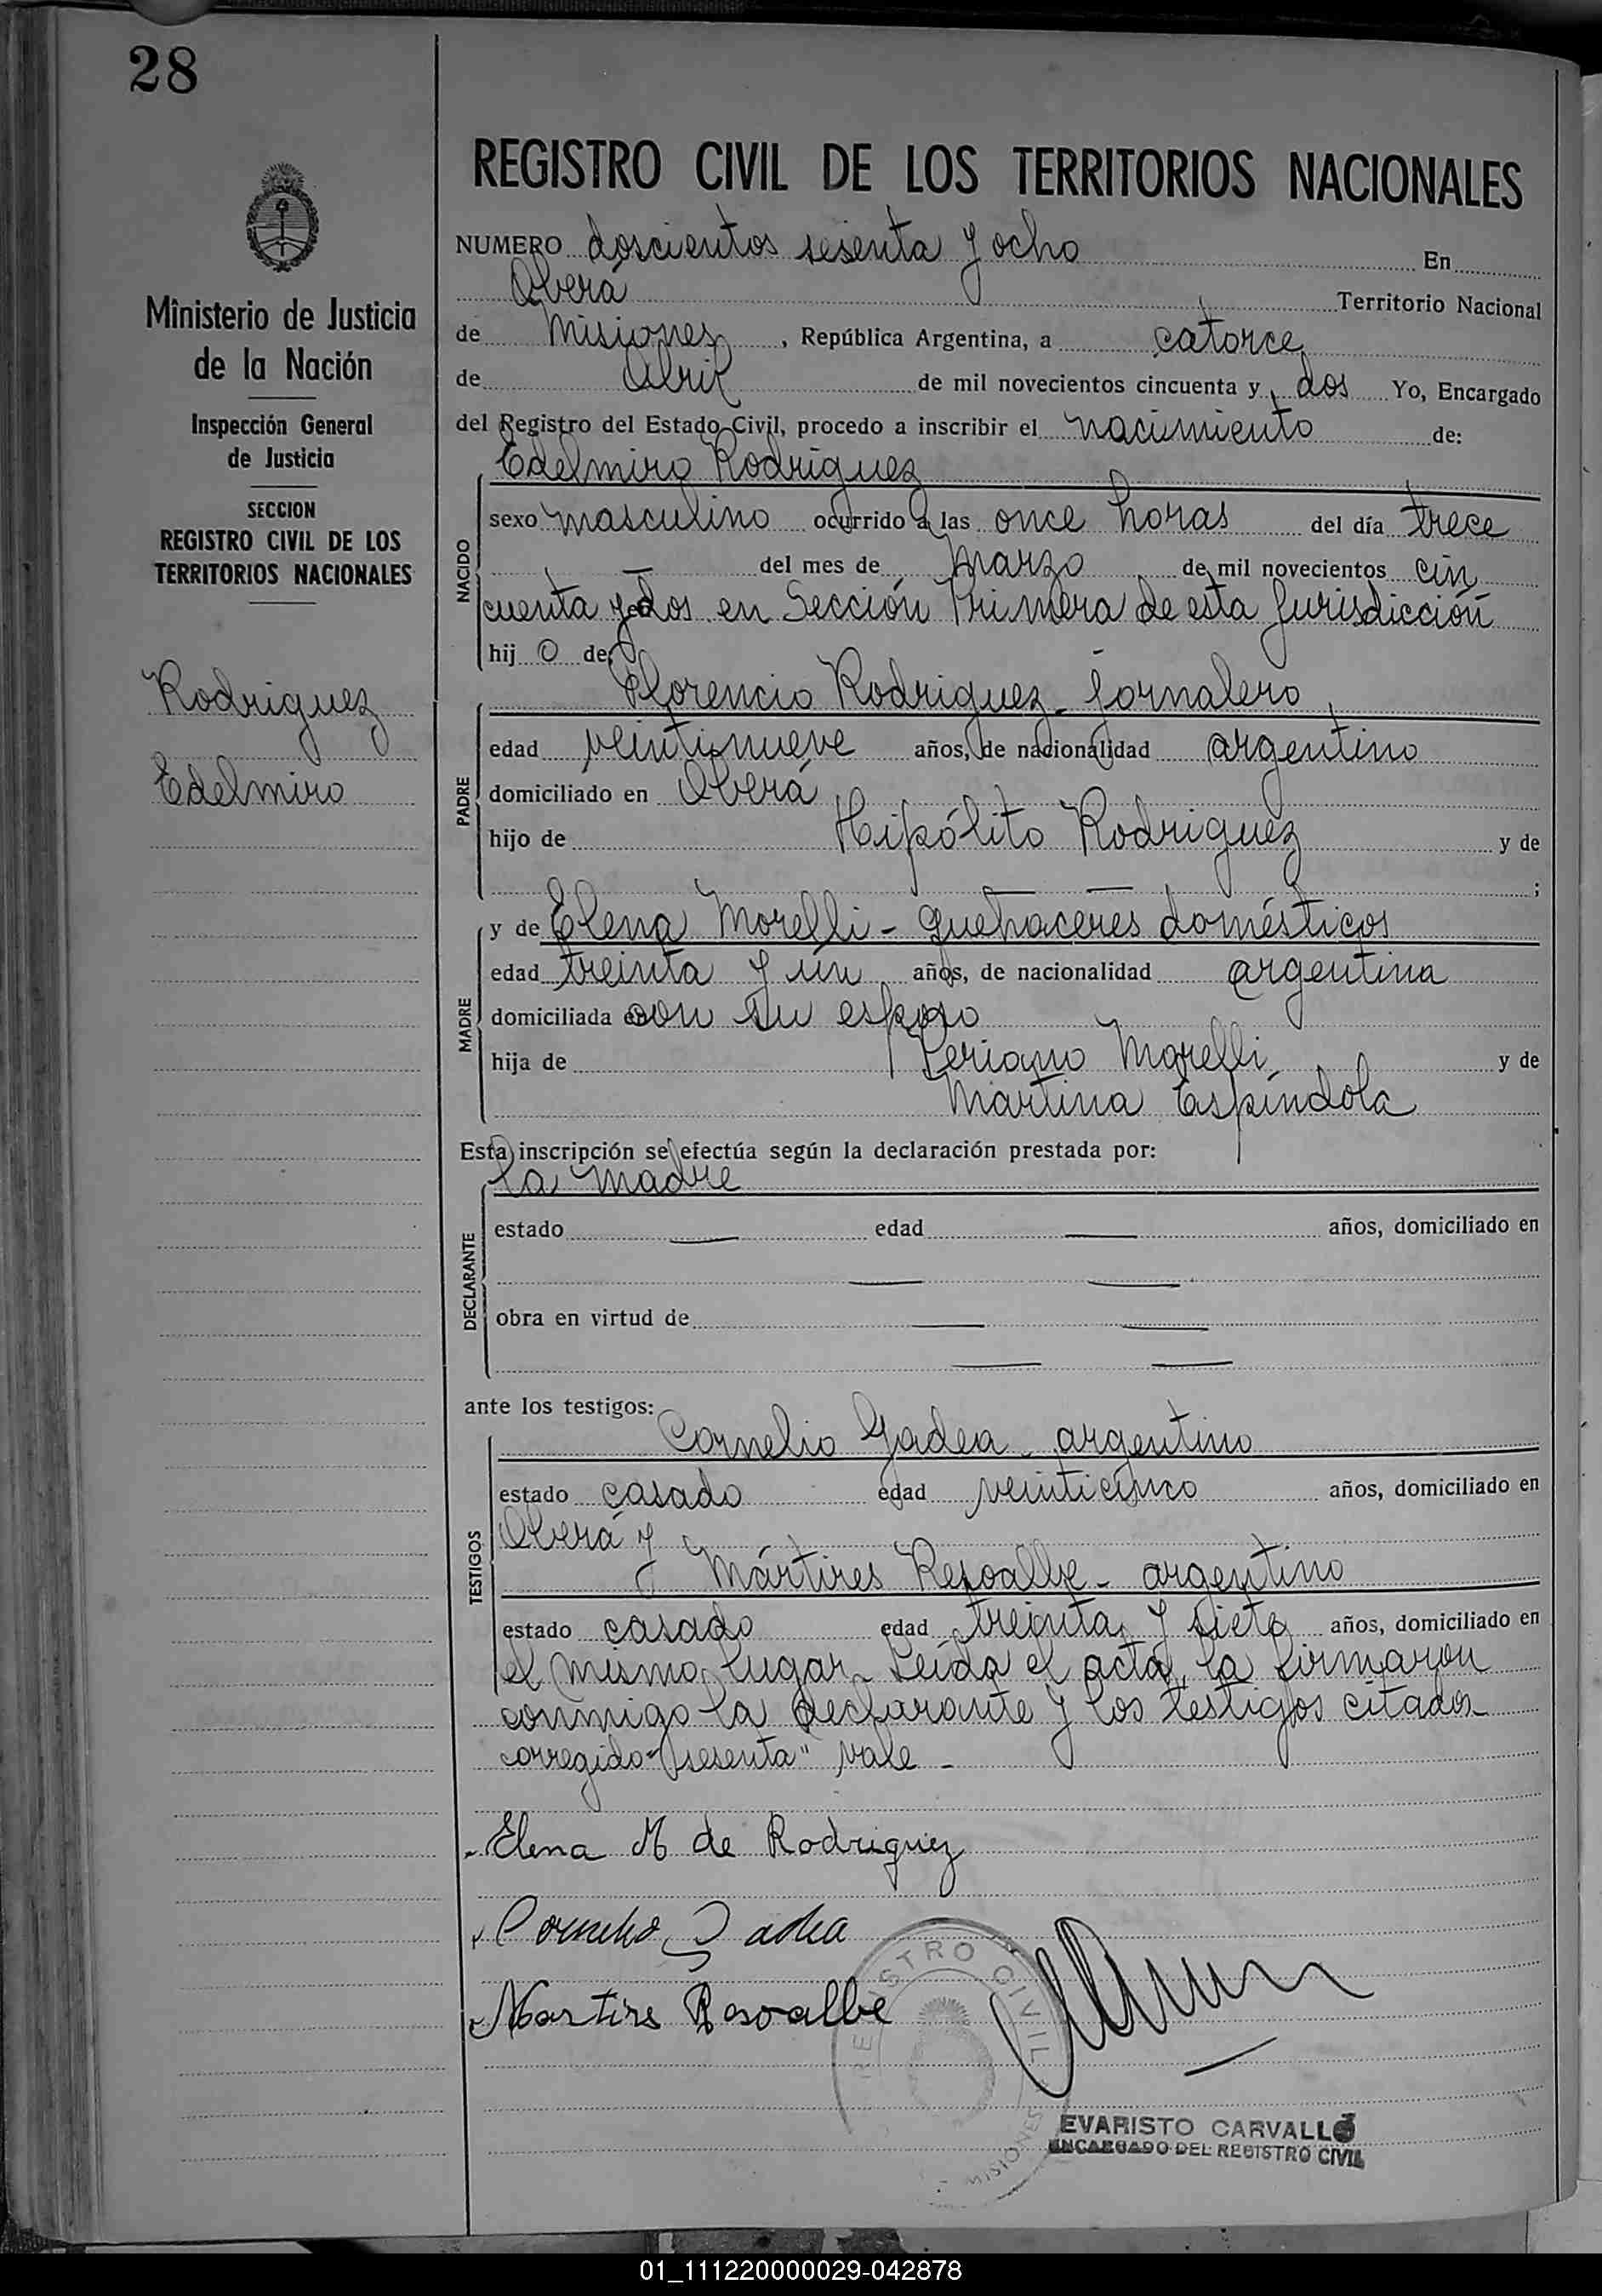 28
REGISTRO CIVIL DE LOS TERRITORIOS NACIONALES
NUMERO doscientos sesenta y ocho En
Oberá Territorio Nacional
de Misiones, República Argentina, a catorce
de Abril de mil novecientos cincuenta y dos Yo, Encargado
del Registro del Estado Civil, procedo a inscribir el nacimiento de:
Edelmiro Rodriguez
NACIDO
sexo masculino ocurrido a las once horas del día trece
del mes de marzo de mil novecientos cin
cuenta y dos en Sección Primera de esta Jurisdicción
hij o de:
Florencio Rodriguez - Jornalero
PADRE
edad veintinueve años, de nacionalidad argentino
domiciliado en Oberá
hijo de Hipólito Rodriguez y de
;
y de Elena Morelli - quehaceres domésticos
MADRE
edad treinta y un años, de nacionalidad argentina
domiciliada con su esposo
hija de Periano Morelli y de
Martina Espíndola
Esta inscripción se efectúa según la declaración prestada por:
la madre
DECLARANTE
estado edad años, domiciliado en
obra en virtud de
ante los testigos:
Cornelio Gadea - argentino
TESTIGOS
estado casado edad veinticinco años, domiciliado en
Oberá y
Mártires Resoalbe - argentino
estado casado edad treinta y siete años, domiciliado en
el mismo lugar - Leída el acta, la firmaron
conmigo la declarante y los testigos citados
corregido "sesenta" vale -
Elena M de Rodriguez
Cornelio Gadea
Martires Resoalbe
REGISTRO CIVIL
MISIONES
EVARISTO CARVALLO
ENCARGADO DEL REGISTRO CIVIL
Ministerio de Justicia
de la Nación
Inspección General
de Justicia
SECCION
REGISTRO CIVIL DE LOS
TERRITORIOS NACIONALES
Rodriguez
Edelmiro
01_111220000029-042878